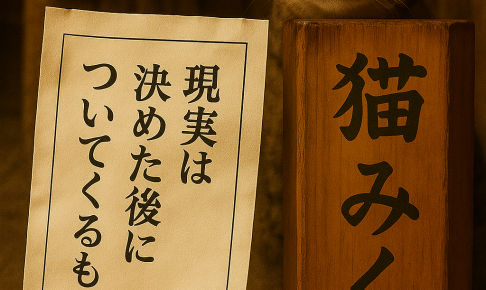 現実は
決めた後に
ついてくるも
猫み